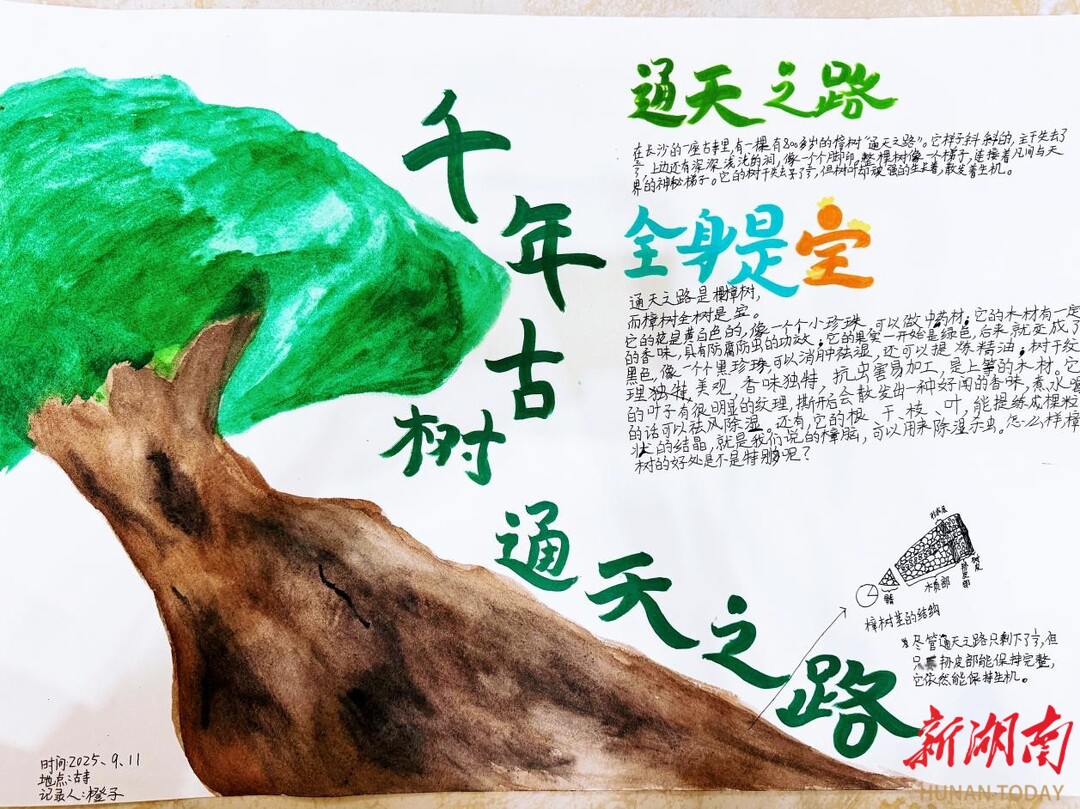 千年古树
通天之路
通天之路
在长沙的一座古寺里,有一棵有800多岁的樟树“通天之路”。它样子斜斜的,主干失去了
,上边还有深深浅浅的洞,像一个个脚印,整棵树像一个梯子,连接着凡间与天
界的神秘梯子。它的树干失去了,但树叶却顽强的生长着,散发着生机。
全身是宝
通天之路是棵樟树,
而樟树全树是宝。
它的花是黄白色的,像一个个小珍珠,可以做中药材;它的木材有一定
的香味,具有防腐防虫的功效;它的果实一开始是绿色,后来就变成了
黑色,像一个个黑珍珠,可以消肿祛湿,还可以提炼精油;树干纹
理独特,美观,香味独特,抗虫害易加工,是上等的木材。它
的叶子有很明显的纹理,撕开后会散发出一种好闻的香味,煮水
的话可以祛风除湿。还有,它的根、干、枝、叶,能提练成棵粒
状的结晶,就是我们说的樟脑,可以用来除湿杀虫。怎么样樟
树的好处是不是特别多呢?
形成层
树皮
韧皮部
木质部
髓
樟树茎的结构
尽管通天之路只剩下了,但
只要韧皮部能保持完整,
它依然能保持生机。
时间:2025、9、11
地点:古寺
记录人:橙子
新湖南
HUNAN TODAY